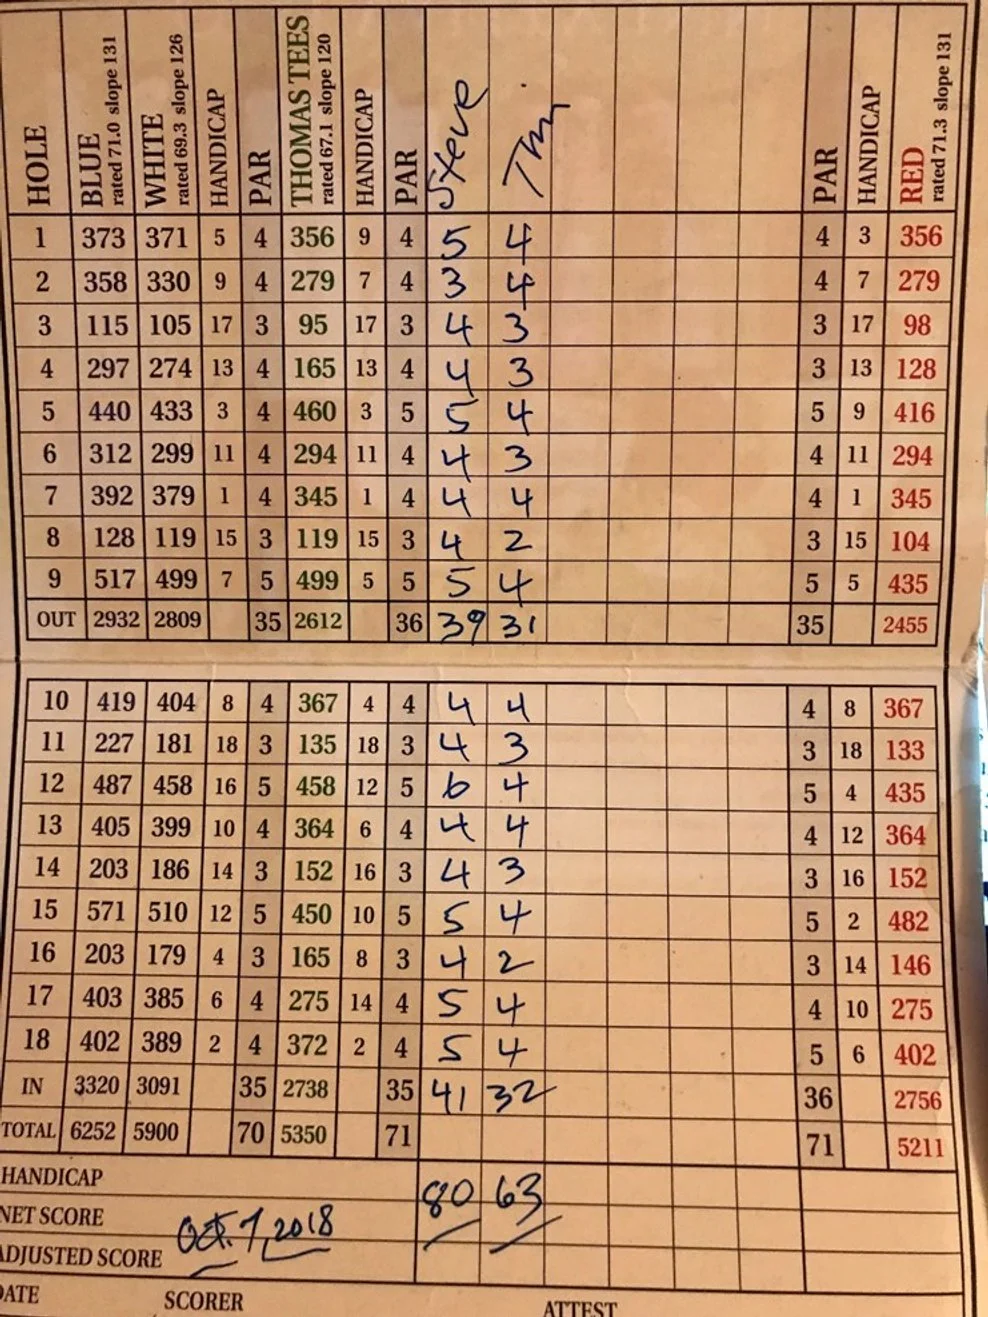 HOLE BLUE rated 71.0 slope 131 WHITE rated 69.3 slope 126 HANDICAP PAR THOMAS TEES rated 67.1 slope 120 HANDICAP PAR Steve Tim PAR HANDICAP RED rated 71.3 slope 131
1 373 371 5 4 356 9 4 5 4 4 3 356
2 358 330 9 4 279 7 4 3 4 4 7 279
3 115 105 17 3 95 17 3 4 3 3 17 98
4 297 274 13 4 165 13 4 4 3 3 13 128
5 440 433 3 4 460 3 5 5 4 5 9 416
6 312 299 11 4 294 11 4 4 3 4 11 294
7 392 379 1 4 345 1 4 4 4 4 1 345
8 128 119 15 3 119 15 3 4 2 3 15 104
9 517 499 7 5 499 5 5 5 4 5 5 435
OUT 2932 2809 35 2612 36 39 31 35 2455
10 419 404 8 4 367 4 4 4 4 4 8 367
11 227 181 18 3 135 18 3 4 3 3 18 133
12 487 458 16 5 458 12 5 6 4 5 4 435
13 405 399 10 4 364 6 4 4 4 4 12 364
14 203 186 14 3 152 16 3 4 3 3 16 152
15 571 510 12 5 450 10 5 5 4 5 2 482
16 203 179 4 3 165 8 3 4 2 3 14 146
17 403 385 6 4 275 14 4 5 4 4 10 275
18 402 389 2 4 372 2 4 5 4 5 6 402
IN 3320 3091 35 2738 35 41 32 36 2756
TOTAL 6252 5900 70 5350 71 71 5211
HANDICAP 80 63
NET SCORE Oct. 7, 2018
ADJUSTED SCORE
DATE SCORER ATTEST